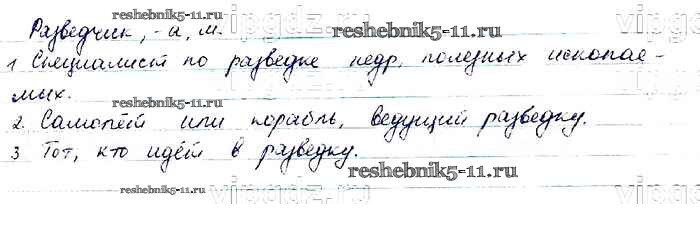 Разведчик, -а, м.
1 Специалист по разведке недр, полезных ископае-
мых.
2. Самолёт или корабль, ведущий разведку.
3 Тот, кто идёт в разведку.
reshebnik5-11.ru
reshebnik5-11.ru
reshebnik5-11.ru
reshebnik5-11.ru
reshebnik5-11.ru
vipgdz.ru
vipgdz.ru